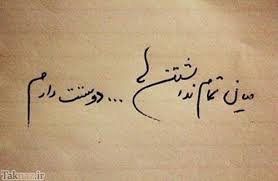 میانِ تمام نداشتن ها ... دوستت دارم
Taknaz.ir